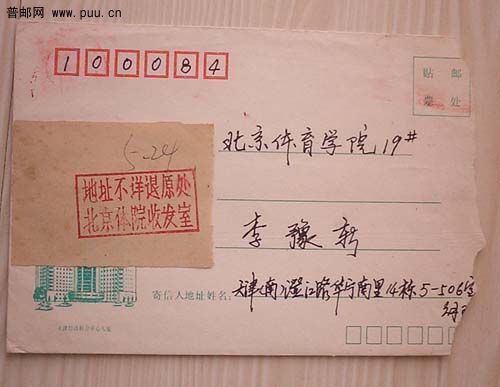 普邮网 www.puu.cn
100084
贴 邮
票 处
北京体育学院19#
5-24
地址不详退原处
北京体院收发室
李豫新
寄信人地址姓名:
天津南 江路华宁南里14栋5-506室